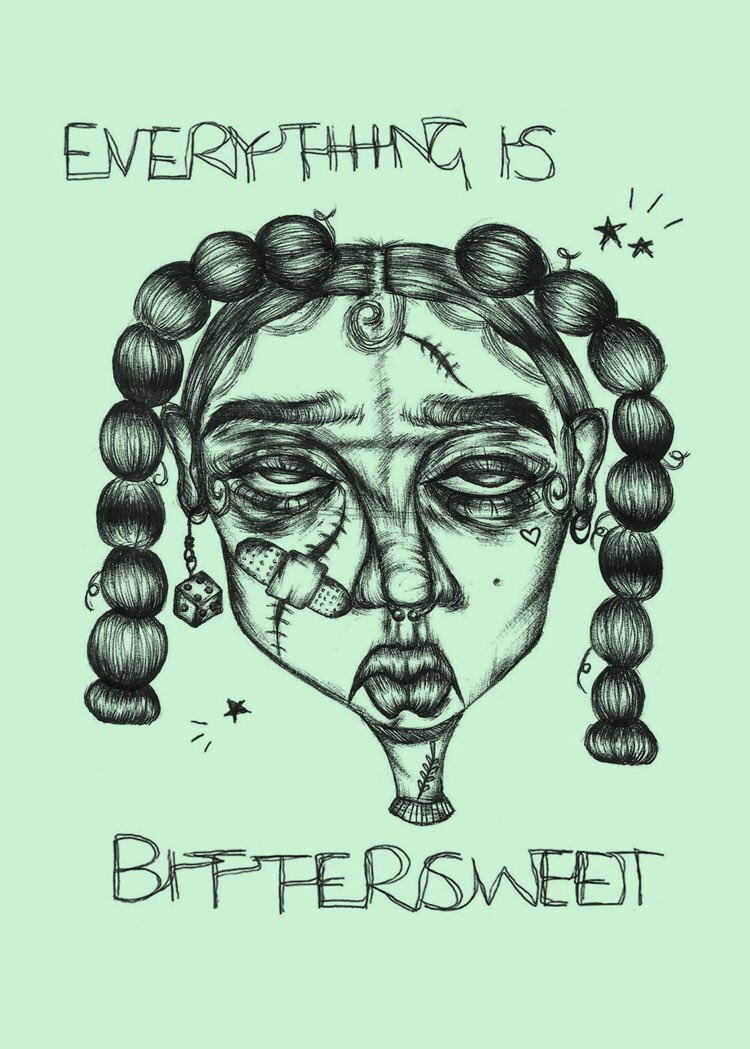 EVERYTHING IS
BITTERSWEET